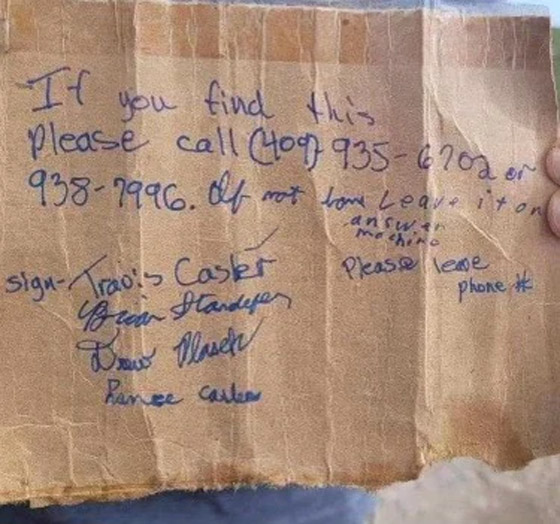 If you find this
Please call (409) 935-6702 or
938-7996. If not home Leave it on
answer
machine
Please leave
phone #
sign- Travis Caster
Brian Standefer
Drew
Ranee Caster